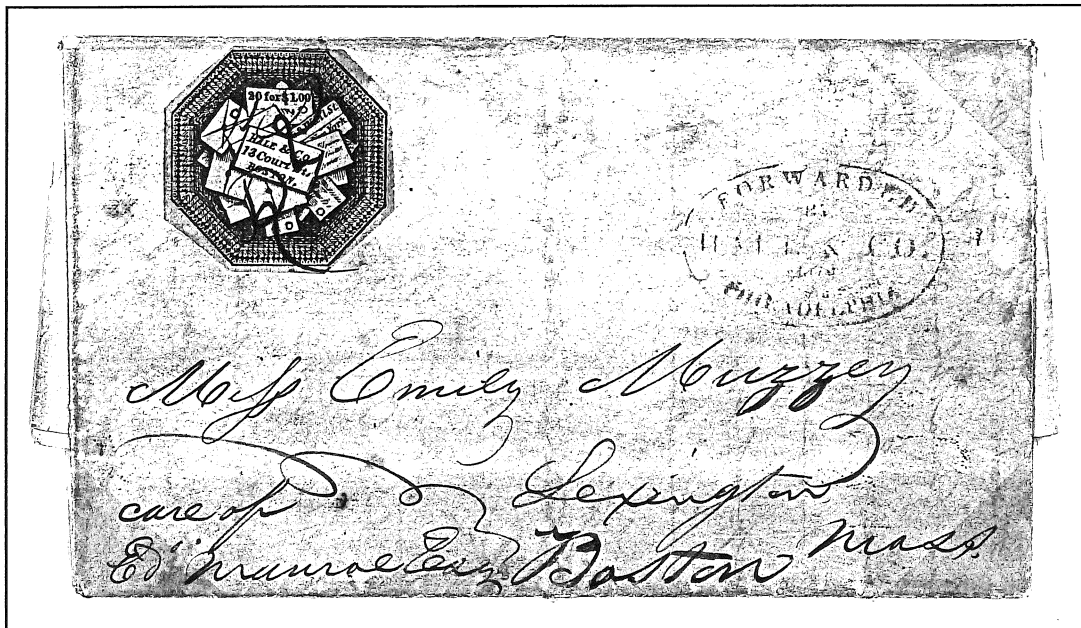 20 for $1.00
HALE & CO.
13 Court St.
BOSTON.
FORWARDED
BY
HALE & CO.
FROM
PHILADELPHIA
Miss Emily Muzzey
care of Lexington
Ed Munroe Esq Boston Mass